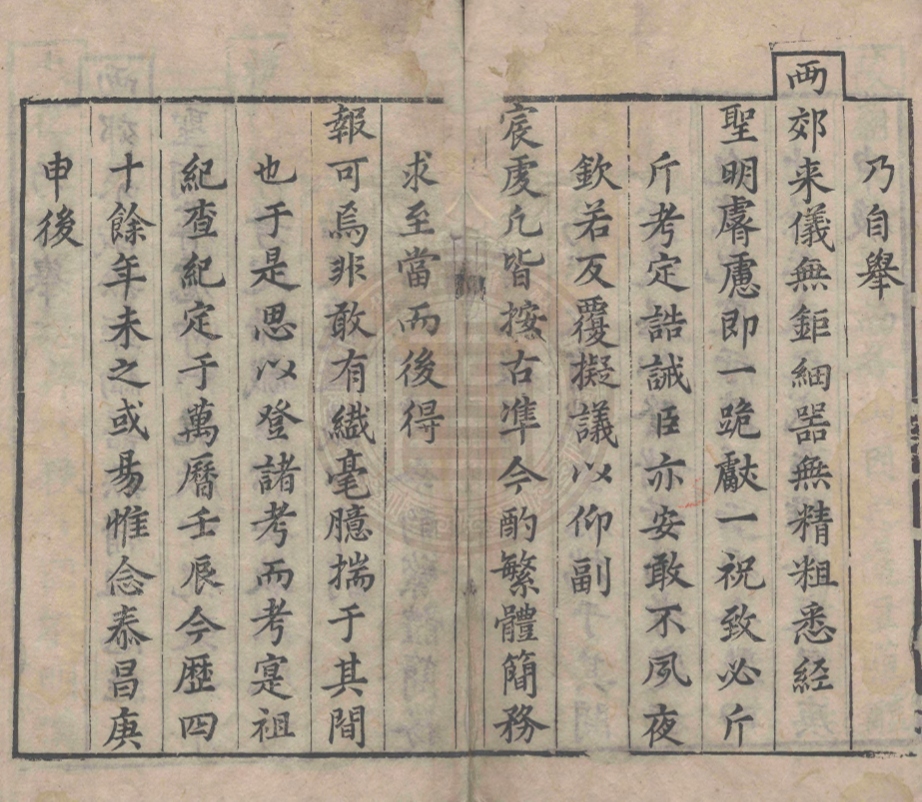 乃自舉
両郊来儀無鉅細器無精粗悉經
聖明睿慮即一跪獻一祝致必斤
斤考定誥誡臣亦安敢不夙夜
欽若反覆擬議以仰副
宸虔凢皆按古凖今酌繁體簡務
求至當而後得
報可焉非敢有纎毫臆揣于其間
也于是思以登諸考而考寔祖
紀查紀定于萬曆壬辰今歴四
十餘年未之或易惟念泰昌庚
申後